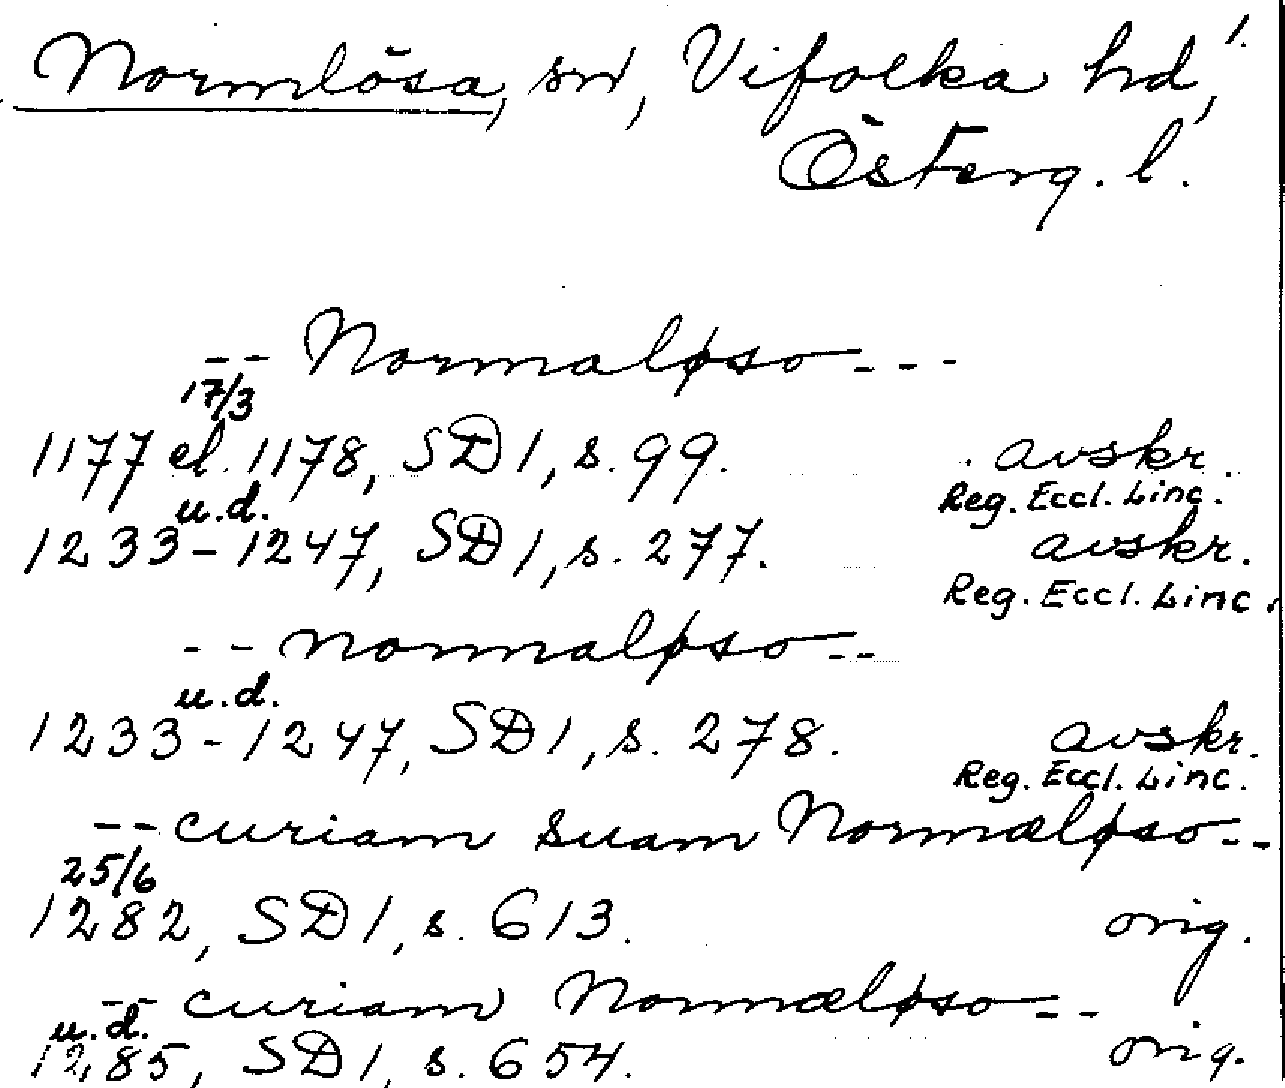 Normlösa, sn, Vifolka hd, 1.
Österg. l.
-- Normaløso ---
17/3
1177 el. 1178, SD 1, s. 99. avskr.
Reg. Eccl. Linc.
u.d.
1233-1247, SD 1, s. 277. avskr.
Reg. Eccl. Linc.
-- normaløso --
u.d.
1233-1247, SD 1, s. 278. avskr.
Reg. Eccl. Linc.
-- curiam suam Normæløso --
25/6
1282, SD 1, s. 613. orig.
-- curiam Normæløso --
u.d.
1285, SD 1, s. 654. orig.